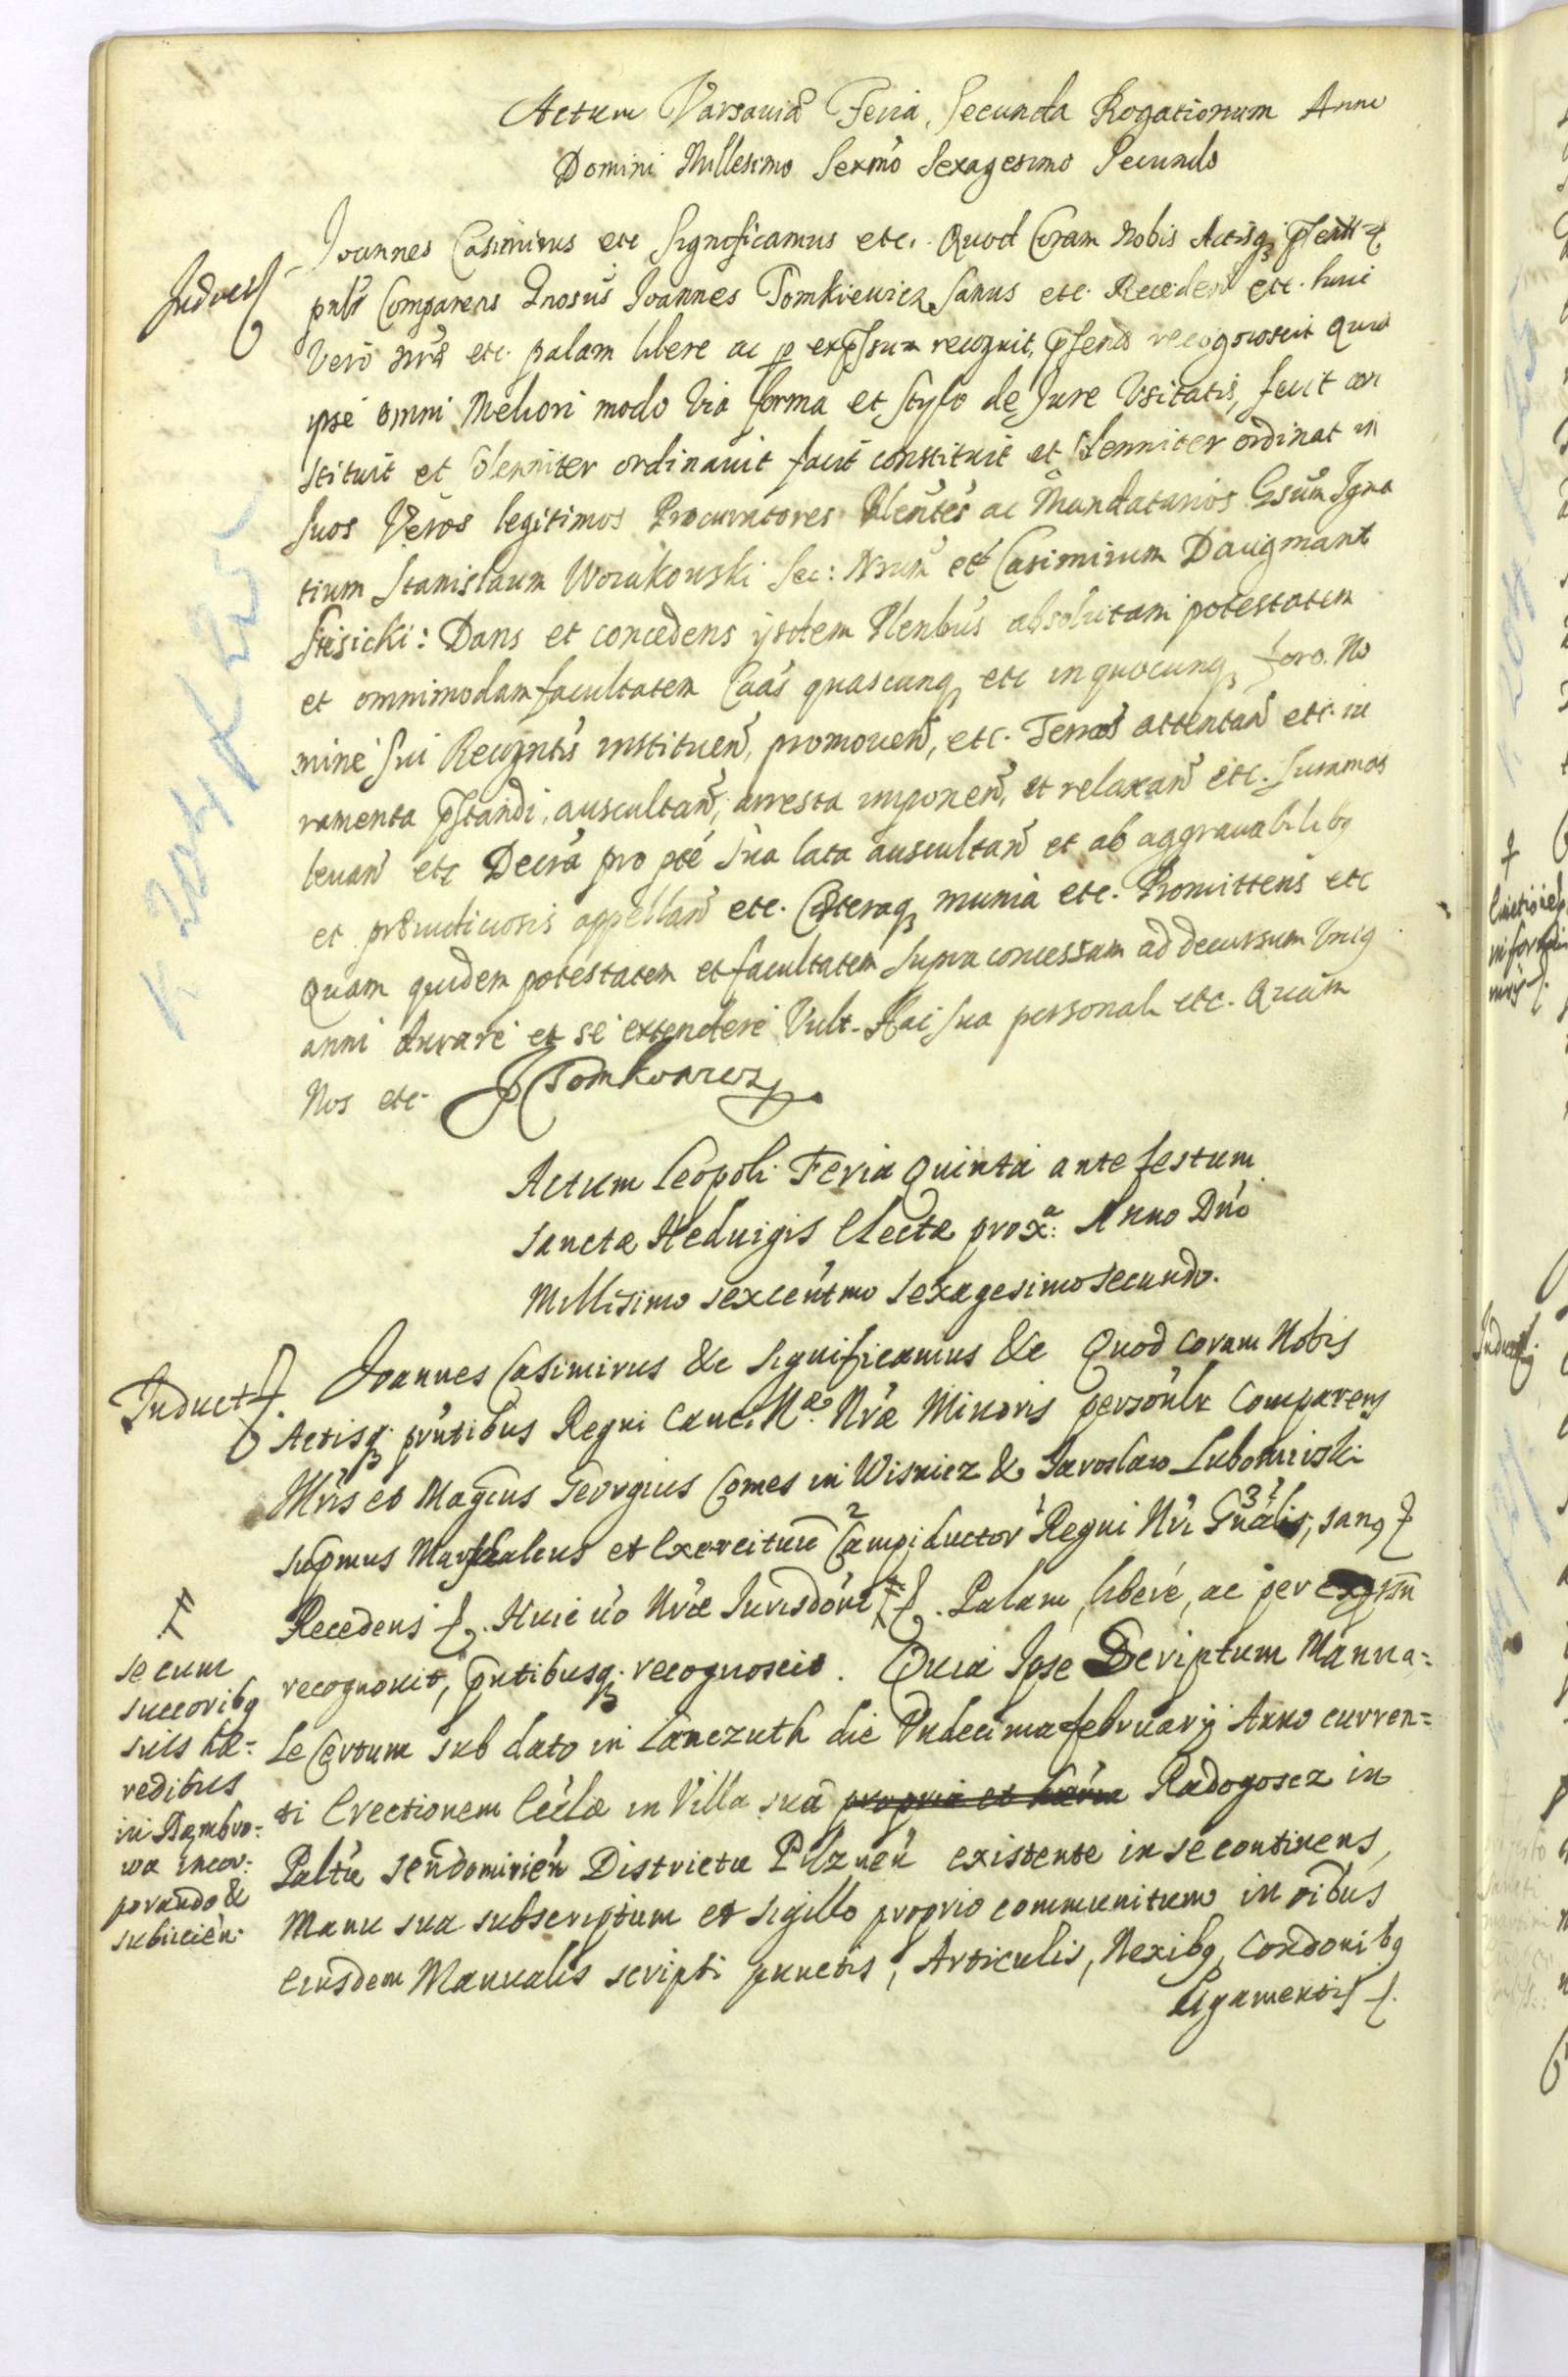 Actum Varsaviæ Feria Secunda Rogationum Anno
Domini Millesimo Sexmo Sexagesimo Secundo
Induct
Joannes Casimirus etc Significamus etc. Quod Coram Nobis Actisq
pnlr Comparens Gnosus Joannes Tomkiewicz Sanus etc. Recedens etc. huic
Vero nræ etc. palam libere ac p expssum recognit, psend recognoscit quia
ipse omni Meliori modo Via forma et stylo de Jure Usitatis, fecit con
stituit et solenniter ordinavit facit constituit et solenniter ordinat in
suos Veros legitimos Procuratores Plentes ac Mandatarios Gsum Igna
tium Stanislaum Worakowski Sec: Nrum et Casimirum Daugmant
Stesicki: Dans et concedens ijsdem Plenbus absolutam potestatem
et omnimodam facultatem Caas quascunq etc in quocunq foro. No
mine sui Recogntis instituen, promoven, etc. Termos attentan etc. iu
ramenta pstandi, auscultan, arresta imponen, et relaxan etc. Summas
levan etc Decra pro pte sua lata auscultan et ab aggravabilibq
et præiudiciosis appellan etc. Cæteraq munia etc. Promittens etc
Quam quidem potestatem et facultatem supra concessam ad decursum Unig
anni durare et se extendere Vult. Hac sua personali etc. Quam
Nos etc. J Tomkowicz
Actum Leopoli Feria Quinta ante festum
Sanctæ Heduigis Electæ prox:a Anno Dno
Millisimo sexcentmo sexagesimo secundo.
Induct
Joannes Casimirus &c significamus &c Quod coram Nobis
Actisq; pntibus Regni Canc. Mæ. Nræ Minoris personlr Comparens
Illris et Magcus Georgius Comes in Wisnicz & Jaroslaw Lubomirski
supmus Marschalcus et Exercituu 2 Campiductor 1 Regni Nri 3 Gnalis, sang
Recedens. Huic uo Nræ Jurisdoni ǂ. Palam, libere, ac per expssu
recognovit, pntibusq; recognoscit. Quia Ipse Scriptum Manua=
le Certum sub dato in Lanczuth die Undecima february Anno curren=
ti Erectionem Ecclæ in Villa sua propria et hæred Radogoscz in
Paltu Sendomirien Districtu Pilznen existente in se continens,
Manu sua subscriptum et sigillo proprio communitum in oibus
eiusdem Manualis scripti punctis, Articulis, Nexibq, Condonibq
Ligamentis
ǂ
se cum
succoribq
suis hæ=
redibus
in Dambro=
wa incor=
porando &
subiicien.